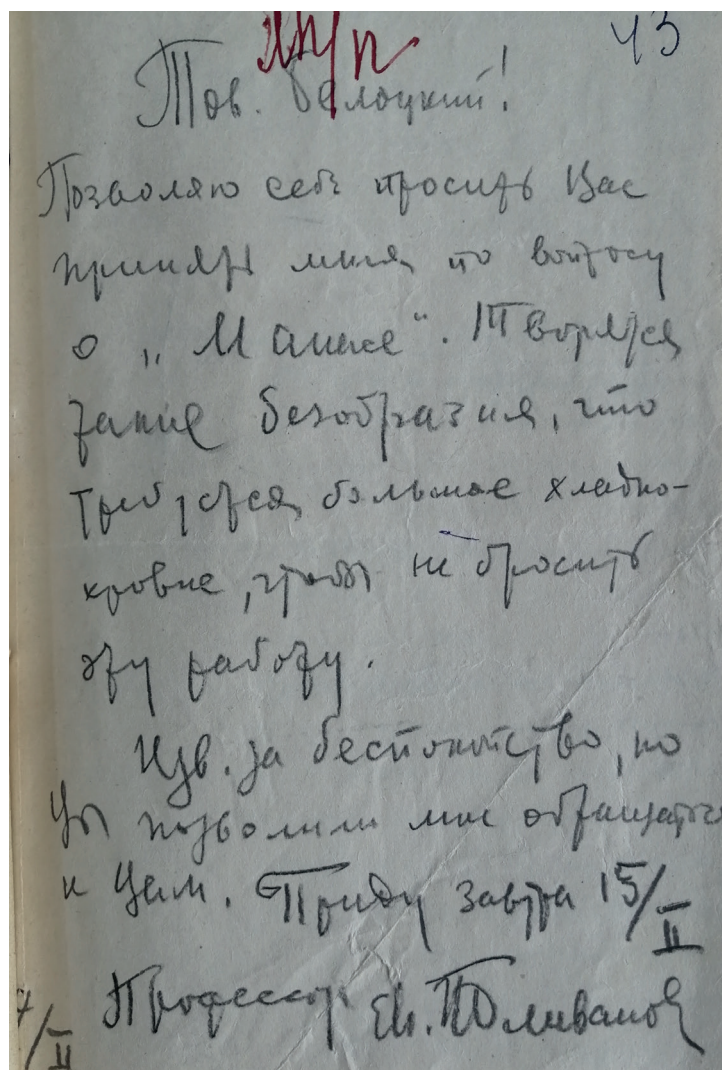 43
Тов. Белоцкий!
Позволяю себе просить Вас
принять меня по вопросу
о „Манасе“. Творятся
такие безобразия, что
требуется большое хладно-
кровие, чтобы не бросить
эту работу.
Изв. за беспокойство, но
Вы позволили мне обращаться
к Вам. Приду завтра 15/II
Профессор Ев. Поливанов
/II